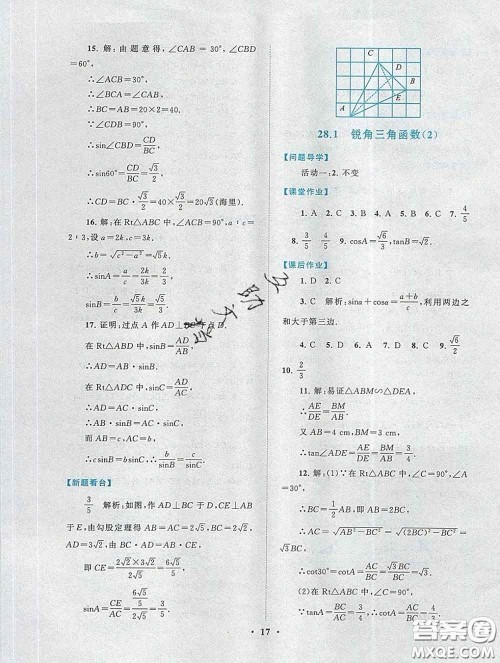 15. 解:由题意得,∠CAB = 30°,∠CBD
=60°,
∴∠ACB=30°,
∴∠BCA=∠CAB,
∴BC=AB=20×2=40.
∵sin∠CBD=CD/BC,
∴sin60°=CD/BC=√3/2,
∴CD=BC·√3/2=40×√3/2=20√3(海里).
16. 解:在 Rt△ABC 中,∠ACB=90°,a:c=
2:3,设 a=2k,c=3k,
∴b=√(c²−a²)=√5k,
∴sinA=a/c=2k/3k=2/3,
sinB=b/c=√5k/3k=√5/3.
17. 证明:过点 A 作 AD⊥BC于点D.
在 Rt△ABD 中,sinB=AD/AB,
∴AD=AB·sinB.
在 Rt△ADC 中,sinC=AD/AC,
∴AD=AC·sinC,
∴AB·sinB=AC·sinC.
而 AB=c,AC=b,
∴c sinB=b sinC,∴b/sinB=c/sinC.
【新题看台】
3/5 解析:如图,作 AD⊥BC 于 D,CE⊥AB
于 E,由勾股定理得 AB=AC=2√5,BC=2√2,
AD=3√2,由 BC·AD=AB·CE,
即 CE=(2√2×3√2)/(2√5)=6√5/5,
sinA=CE/AC=(6√5/5)/(2√5)=3/5.
A B C D E
28.1 锐角三角函数(2)
【问题导学】
活动一:2. 不变
【课堂作业】
1. A 2. C 3. B 4. A 5. B 6. C 7. 4/5
8. 3/5 4/5 9. cosA=√6/3,tanB=√2.
【课后作业】
1. D 2. C
3. C 解析:sinα+cosα=(a+b)/c,利用两边之
和大于第三边.
4. C 5. C 6. C 7. B 8. 4/3 9. √6/2
10. 2/3
11. 解:易证△ABM∽△DEA,
∴AE/DE=BM/AB.
又 AB=4 cm,BM=3 cm,
∴tan∠ADE=AE/DE=BM/AB=3/4.
12. 解:(1)∵在 Rt△ABC 中,∠C=90°,∠A
=30°,∴BC=1/2AB,即 AB=2BC,
∴AC=√(AB²−BC²)=√((2BC)²−BC²)=
√3BC,
∴cot30°=cotA=AC/BC=√3BC/BC=√3.
(2)在 Rt△ABC 中,∠C=90°,
∵tanA=BC/AC=3/4,∴cotA=AC/BC=4/3.
· 17 ·
答案圈
MXQE.COM